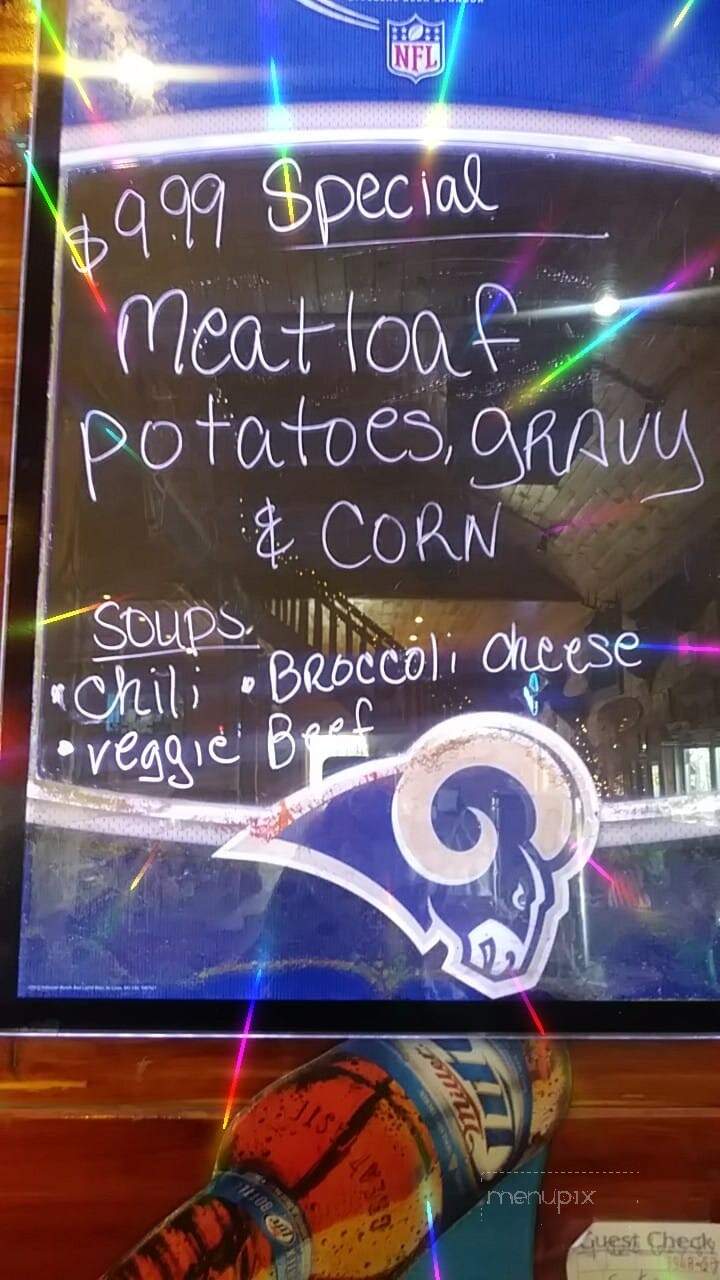 NFL
$9.99 Special
Meatloaf
potatoes, GRAVY
& CORN
SOUPS
• Chili • BROCCOLi cheese
• veggie Beef
Miller
Lite
menupix
Guest Check